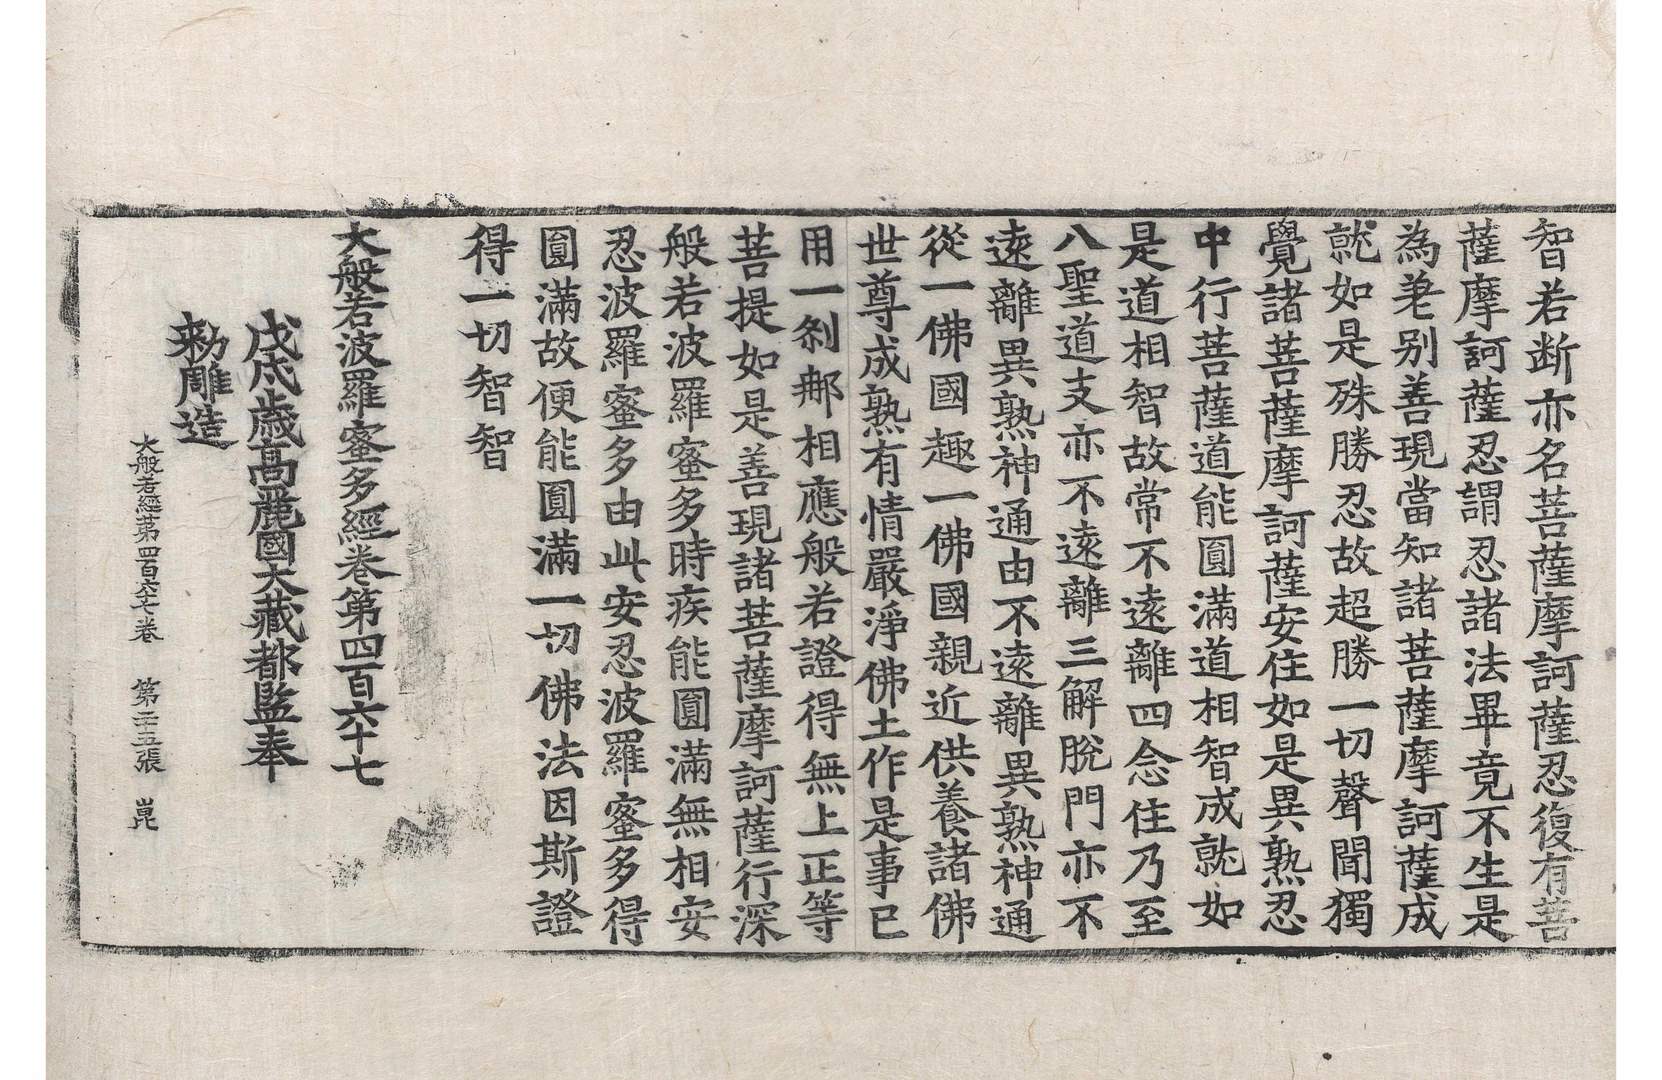 智若断亦名菩薩摩訶薩忍復有菩
薩摩訶薩忍謂忍諸法畢竟不生是
為差别善現當知諸菩薩摩訶薩成
就如是殊勝忍故超勝一切聲聞獨
覺諸菩薩摩訶薩安住如是異熟忍
中行菩薩道能圓滿道相智成就如
是道相智故常不遠離四念住乃至
八聖道支亦不遠離三解脫門亦不
遠離異熟神通由不遠離異熟神通
從一佛國趣一佛國親近供養諸佛
世尊成熟有情嚴淨佛土作是事已
用一刹那相應般若證得無上正等
菩提如是善現諸菩薩摩訶薩行深
般若波羅蜜多時疾能圓滿無相安
忍波羅蜜多由此安忍波羅蜜多得
圓滿故便能圓滿一切佛法因斯證
得一切智智
大般若波羅蜜多經卷第四百六十七
戊戌歳高麗國大藏都監奉
勑雕造
大般若經苐四百六十七卷 第二十五張 崑